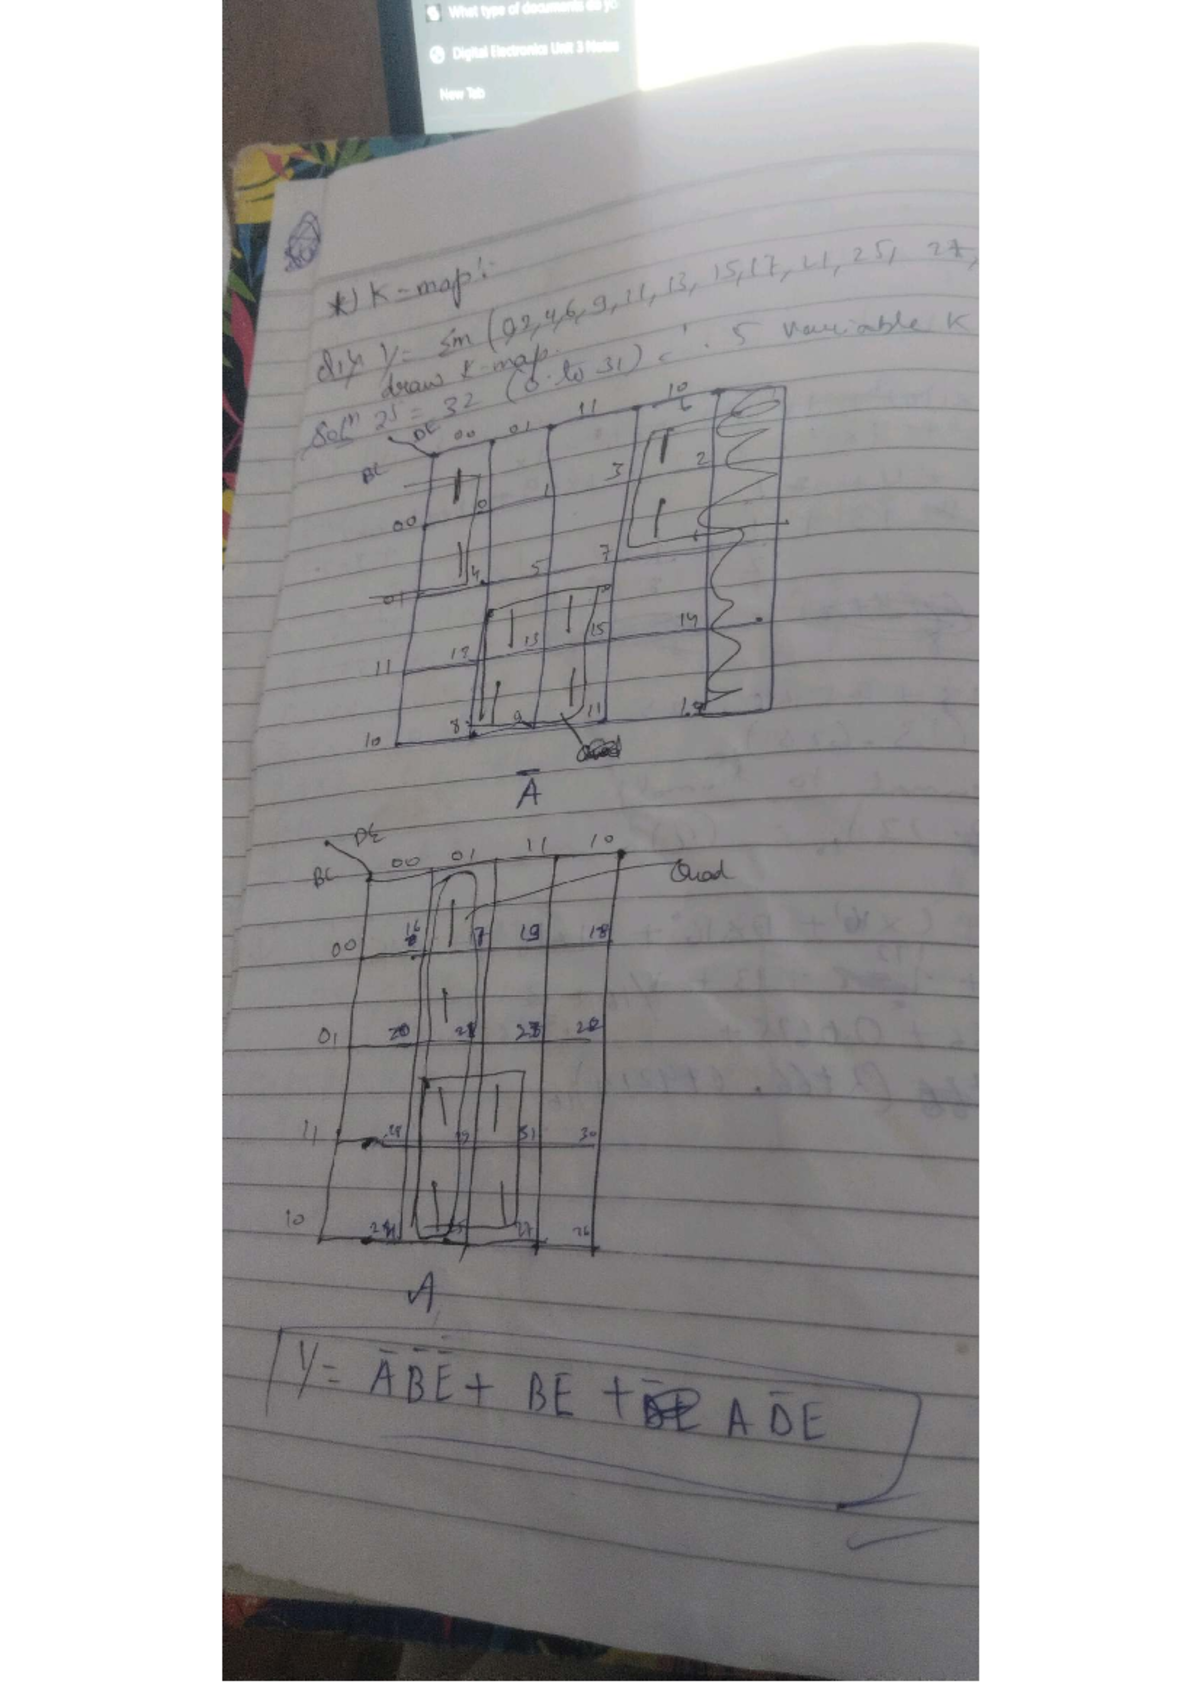 What type of documents do yo
Digital Electronics Unit 3 Notes
New Tab
*) K-map:-
Y = Σm (0,2,4,6,9,11,13,15,17,21,25,27,
draw K-map.
Solⁿ 2⁵ = 32 (0 to 31) = ∴ 5 Variable K
DE
00 01 11 10
BC
00 0 1 3 2
01 4 5 7 6
11 12 13 15 14
10 8 9 11 10
Ā
DE
00 01 11 10
BC
Quad
00 16 17 19 18
01 20 21 23 22
11 28 29 31 30
10 24 25 27 26
A
Y = A̅ B̅ E̅ + BE + A D̅ E